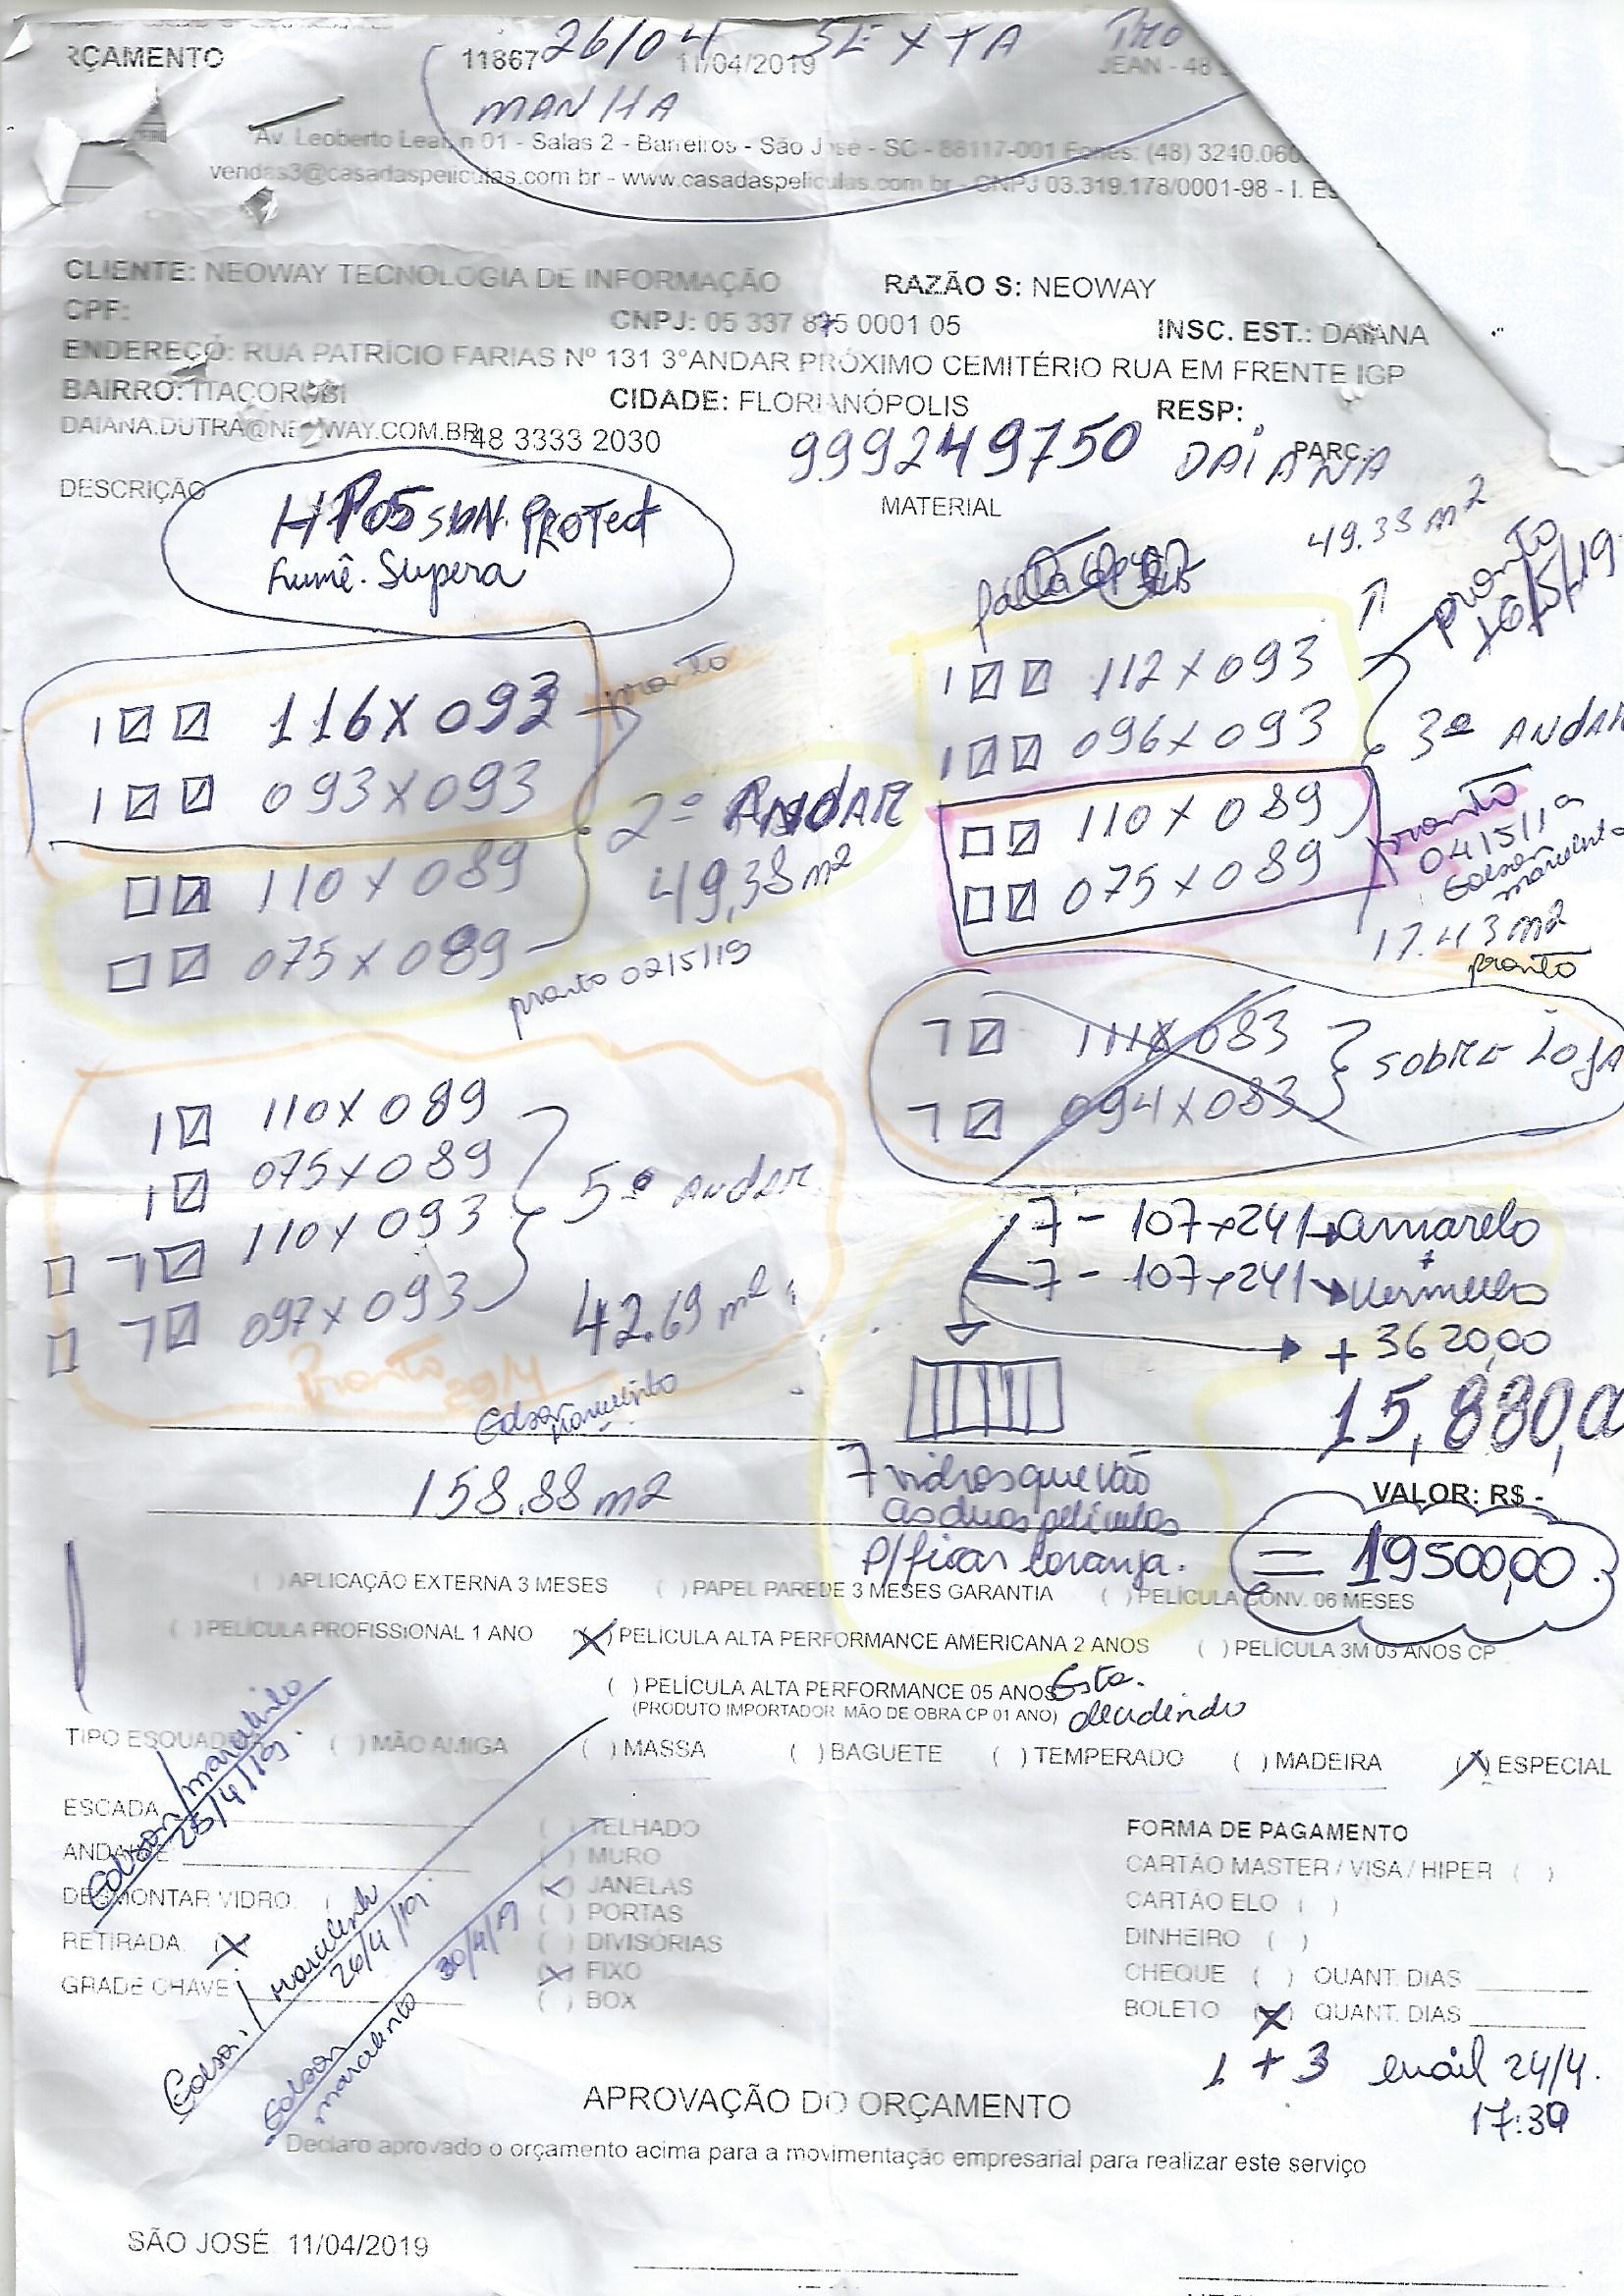 RÇAMENTO 11867 11/04/2019
26/04 SEXTA
JEAN - 48
MANHA
Av. Leoberto Leal n 01 - Salas 2 - Barreiros - São José - SC - 88117-001 Fones: (48) 3240.060
vendas3@casadaspeliculas.com.br - www.casadaspeliculas.com.br - CNPJ 03.319.178/0001-98 - I. ES
CLIENTE: NEOWAY TECNOLOGIA DE INFORMAÇÃO RAZÃO S: NEOWAY
CPF: CNPJ: 05 337 875 0001 05 INSC. EST.: DAIANA
ENDEREÇO: RUA PATRÍCIO FARIAS Nº 131 3°ANDAR PRÓXIMO CEMITÉRIO RUA EM FRENTE IGP
BAIRRO: ITACORUBI CIDADE: FLORIANÓPOLIS RESP:
DAIANA.DUTRA@NEOWAY.COM.BR 48 3333 2030 999249750 DAIANA PARC.
DESCRIÇÃO MATERIAL
HP05 SUN. PROTect
Fumê. Supera
49.38 m2
pronto
16/5/19
1 116 x 093 pronto
1 093 x 093
110 x 089
075 x 089
2º ANDAR
49,38 m2
pronto 02/5/19
1 112 x 093
1 096 x 093
3º ANDAR
110 x 089
075 x 089
pronto
04/5/19
Edson
marcelinho
17.43 m2
pronto
7 111 x 083
7 094 x 083
SOBRE LOJA
1 110 x 089
1 075 x 089
7 110 x 093
7 097 x 093
5º ANDAR
42.69 m2
Pronto 29/4
Edson
marcelinho
158.88 m2
7 - 107 x 241 amarelo
+
7 - 107 x 241 Vermelho
+ 3620,00
15,880,00
7 vidros que vão
as duas películas
p/ ficar laranja.
VALOR: R$ -
= 19500,00
( ) APLICAÇÃO EXTERNA 3 MESES ( ) PAPEL PAREDE 3 MESES GARANTIA ( ) PELÍCULA CONV. 06 MESES
( ) PELÍCULA PROFISSIONAL 1 ANO (X) PELÍCULA ALTA PERFORMANCE AMERICANA 2 ANOS ( ) PELÍCULA 3M 03 ANOS CP
( ) PELÍCULA ALTA PERFORMANCE 05 ANOS Esta.
(PRODUTO IMPORTADOR MÃO DE OBRA CP 01 ANO) decidindo
TIPO ESQUADRIA ( ) MÃO AMIGA ( ) MASSA ( ) BAGUETE ( ) TEMPERADO ( ) MADEIRA (X) ESPECIAL
Edson/marcelinho
25/4/19.
ESCADA
ANDAIME
DESMONTAR VIDRO. (
RETIRADA (X
GRADE CHAVE
Edson/marcelinho
26/4/19.
Edson
marcelinho 30/4/19
( ) TELHADO
( ) MURO
(X) JANELAS
( ) PORTAS
( ) DIVISÓRIAS
(X) FIXO
( ) BOX
FORMA DE PAGAMENTO
CARTÃO MASTER / VISA / HIPER ( )
CARTÃO ELO ( )
DINHEIRO ( )
CHEQUE ( ) QUANT. DIAS
BOLETO (X) QUANT. DIAS
1 + 3 email 24/4.
17:30
APROVAÇÃO DO ORÇAMENTO
Declaro aprovado o orçamento acima para a movimentação empresarial para realizar este serviço
SÃO JOSÉ 11/04/2019